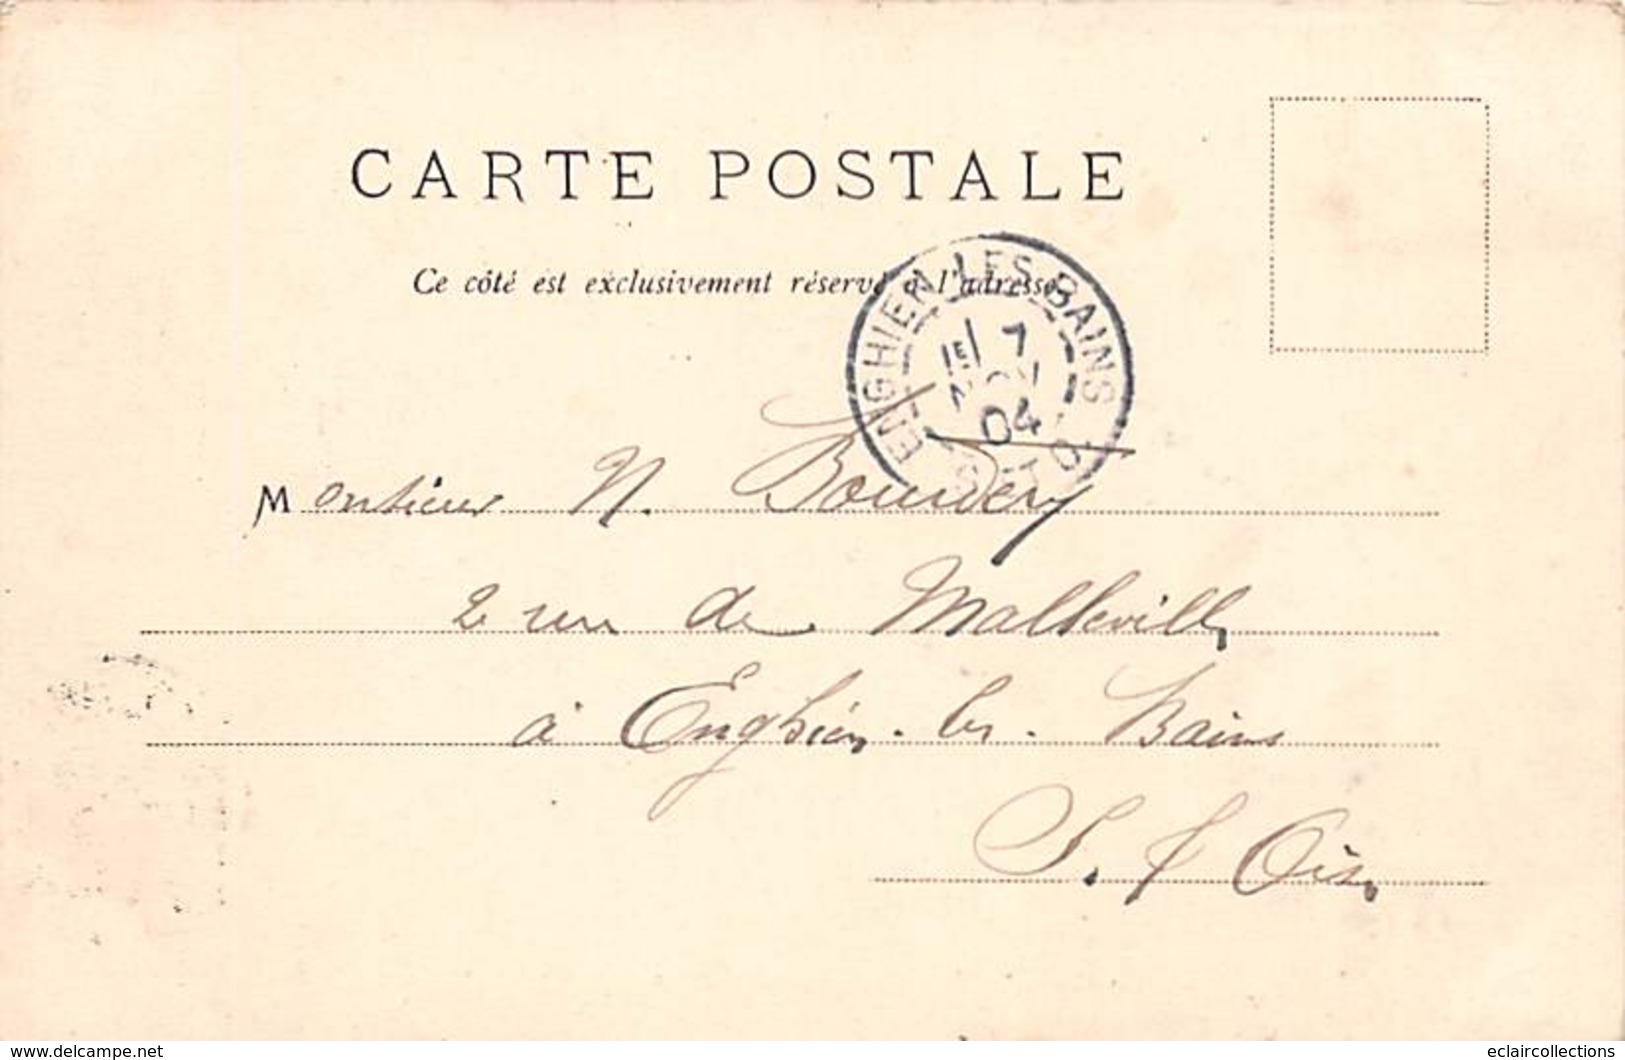 CARTE POSTALE
Ce côté est exclusivement réservé à l'adresse
ENGHIEN-LES-BAINS
7
NOV
04
S. ET O.
Monsieur N. Bourdery
2 rue de Malleville
à Enghien-les-Bains
S. & Oise
www.delcampe.net
eclaircollections